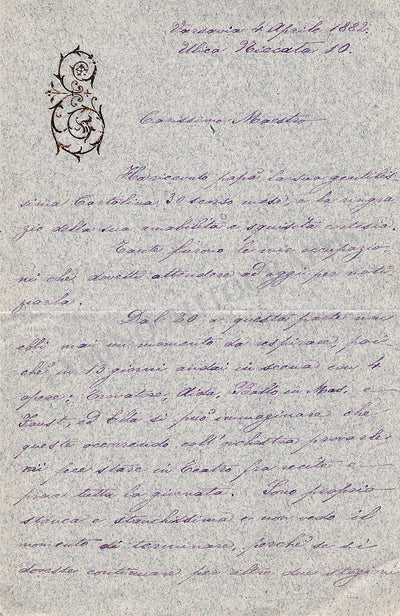 Varsavia 4 Aprile 1882.
Ulica Niecała 10.
Carissimo Maestro
Ha ricevuto papà la sua gentilis-
sima Cartolina 30 scorso mese, e la ringra-
zio della sua amabilità e squisita cortesia.
Tante furono le mie occupazio-
ni che dovetti attendere ad oggi per noti-
ziarla.
Dal 20 a questa parte non
ebbi mai un momento da respirare, poi-
chè in 13 giorni andai in scena con 4
opere: Trovatore, Aida, Ballo in Mas. e
Faust, ed Ella si può immaginare che
queste occorrendo coll'orchestra provarle
mi fece stare in Teatro fra recite e
prove tutta la giornata. Sono proprio
stanca e stanchissima e non vedo il
momento di terminare, perchè se si
dovesse continuare per altre due stagioni